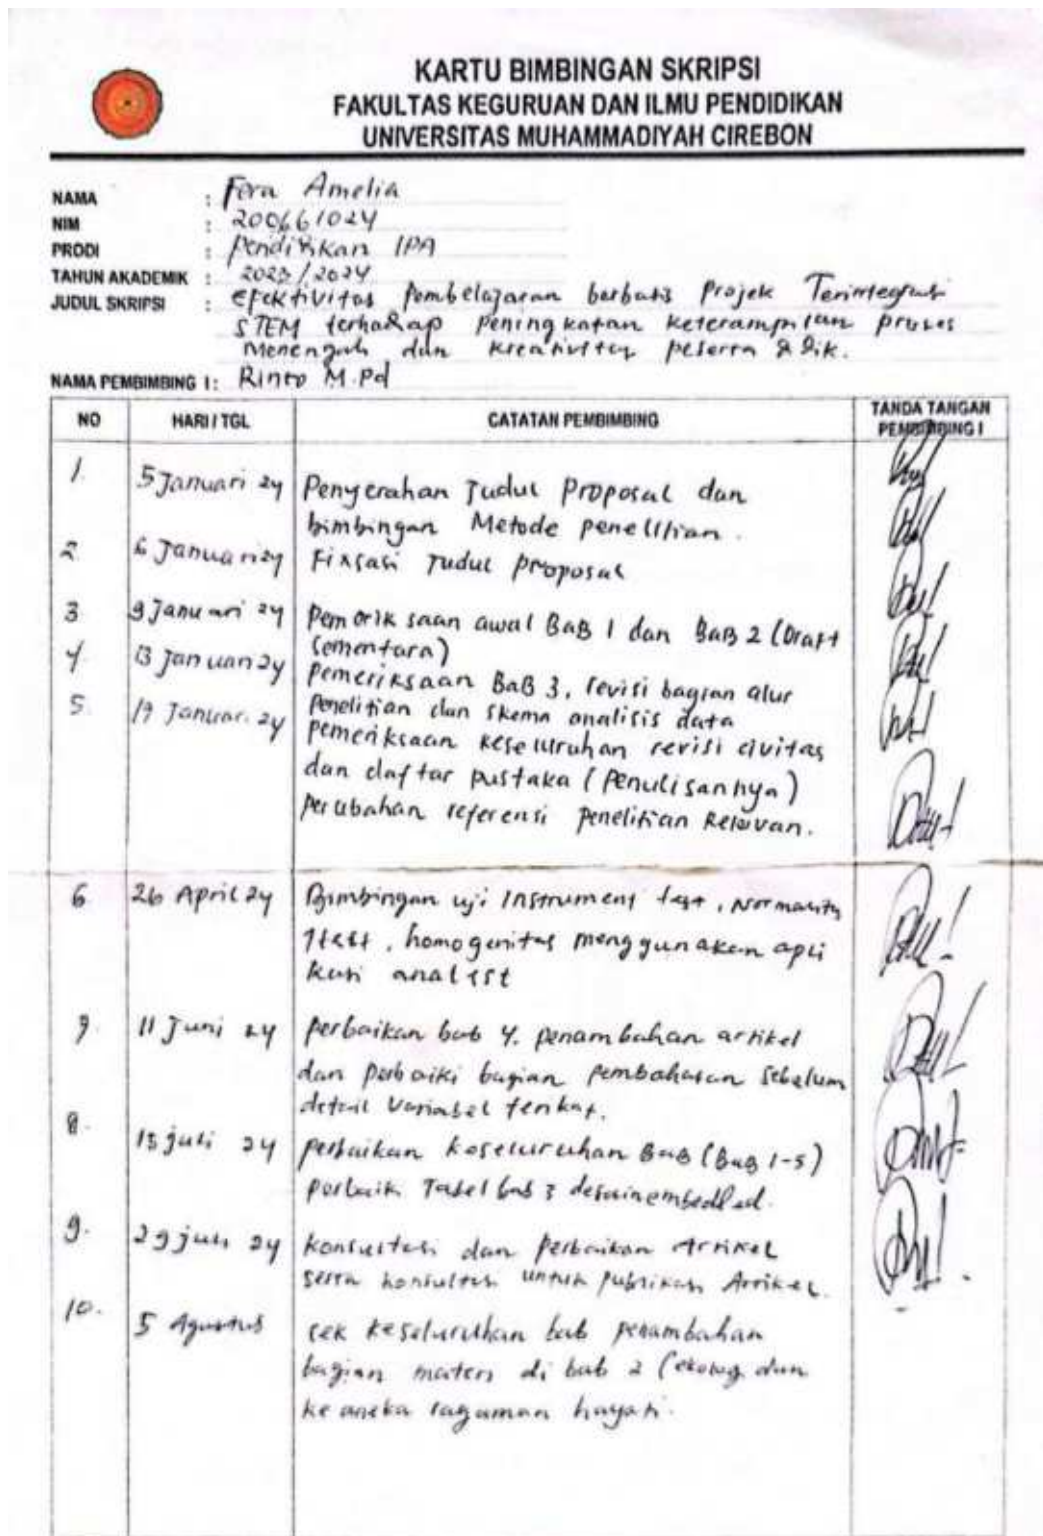 KARTU BIMBINGAN SKRIPSI
FAKULTAS KEGURUAN DAN ILMU PENDIDIKAN
UNIVERSITAS MUHAMMADIYAH CIREBON
NAMA : Fera Amelia
NIM : 200661024
PRODI : Pendidikan IPA
TAHUN AKADEMIK : 2023/2024
JUDUL SKRIPSI : Efektivitas Pembelajaran berbasis Projek Terintegrasi
STEM terhadap Peningkatan keterampilan proses
Menengah dan kreativitas peserta didik.
NAMA PEMBIMBING I : Rinto M.Pd
NO HARI / TGL CATATAN PEMBIMBING TANDA TANGAN
PEMBIMBING I
1. 5 Januari 24 Penyerahan Judul Proposal dan
bimbingan Metode penelitian.
2 6 Januari 24 Fixsasi Judul proposal
3 9 Januari 24 Pemeriksaan awal BaB 1 dan BaB 2 (Draft
Sementara)
4. 13 Januari 24 Pemeriksaan BaB 3, revisi bagian alur
Penelitian dan skema analisis data
5. 19 Januari 24 Pemeriksaan keseluruhan revisi civitas
dan daftar pustaka (Penulisannya)
Perubahan referensi Penelitian Relevan.
6 26 April 24 Bimbingan uji Instrument test, Normality
test, homogenitas menggunakan apli
kasi
7. 11 Juni 24 Perbaikan bab 4. penambahan artikel
dan perbaiki bagian pembahasan sebelum
detail Variabel terikat.
8. 15 juli 24 perbaikan keseluruhan BaB (BaB 1-5)
perbaik Tabel bab 3 desain embedded.
9. 29 juli 24 konsultasi dan Perbaikan Artikel
serta konsultasi untuk publikasi Artikel.
10. 5 Agustus cek keseluruhan bab penambahan
bagian materi di bab 2 (ekologi dan
ke aneka ragaman hayati.